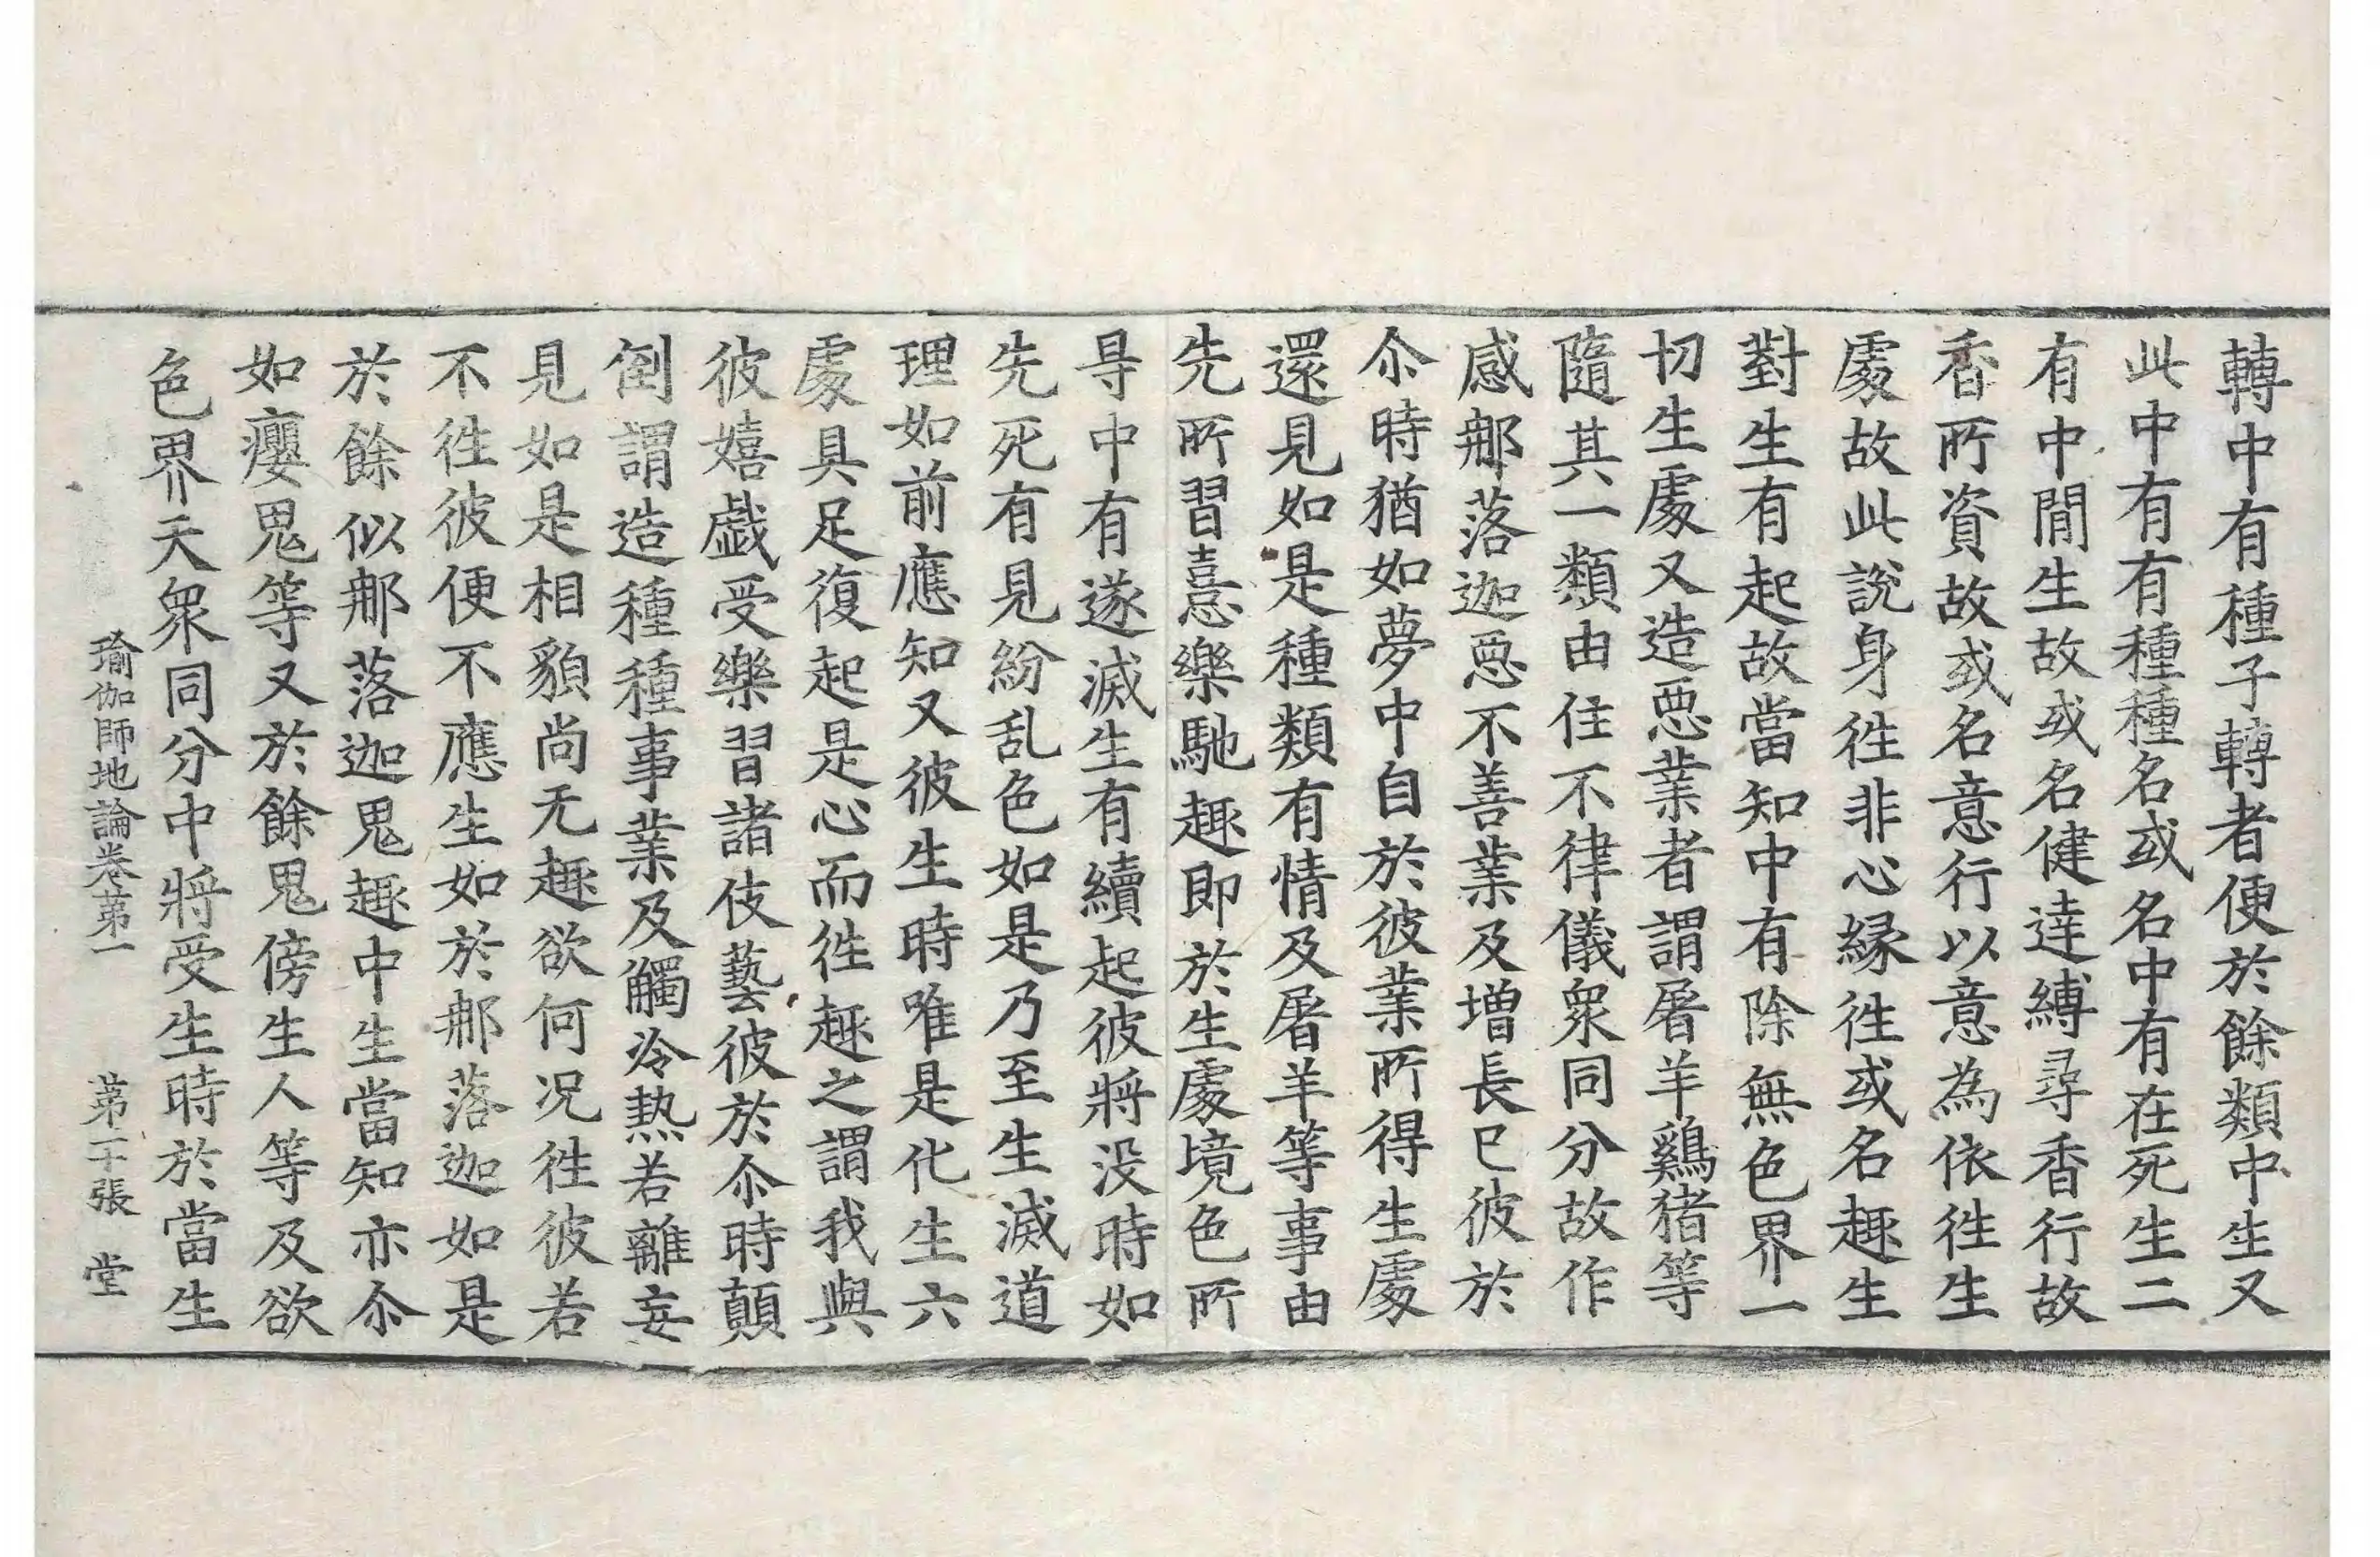 轉中有種子轉者便於餘類中生又
此中有有種種名或名中有在死生二
有中閒生故或名健達縛尋香行故
香所資故或名意行以意為依往生
處故此說身往非心緣往或名趣生
對生有起故當知中有除無色界一
切生處又造惡業者謂屠羊鷄猪等
隨其一類由住不律儀衆同分故作
感那落迦惡不善業及增長已彼於
尒時猶如夢中自於彼業所得生處
還見如是種類有情及屠羊等事由
先所習憙樂馳趣即於生處境色所
㝵中有遂滅生有續起彼將没時如
先死有見紛乱色如是乃至生滅道
理如前應知又彼生時唯是化生六
處具足復起是心而往趣之謂我與
彼嬉戯受樂習諸伎藝彼於尒時顛
倒謂造種種事業及觸冷熱若離妄
見如是相貌尚无趣欲何况往彼若
不往彼便不應生如於那落迦如是
於餘似那落迦鬼趣中生當知亦尒
如癭鬼等又於餘鬼傍生人等及欲
色界天衆同分中將受生時於當生
瑜伽師地論卷第一 第二十張 堂